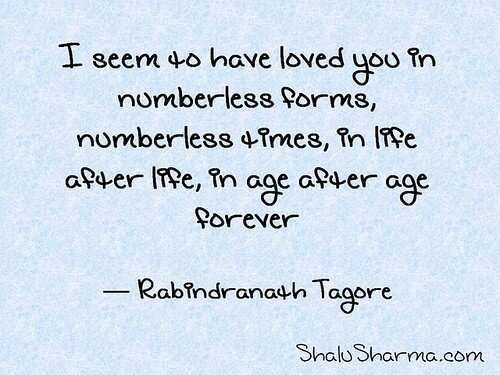 I seem to have loved you in
numberless forms,
numberless times, in life
after life, in age after age
forever
— Rabindranath Tagore
ShaluSharma.com